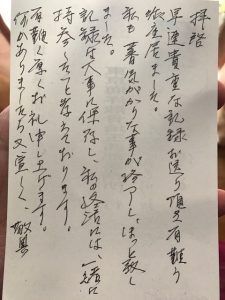 拝啓
早速貴重な記録お送り頂き有難う
御座居ました。
私も気がかりな事が終了し、ほっと致し
ました。
記録は大事に保存し、私の終活には、一緒に
持参したいと考えております。
有難く厚くお礼申し上げます。
何かありましたら又宜しく 敬具